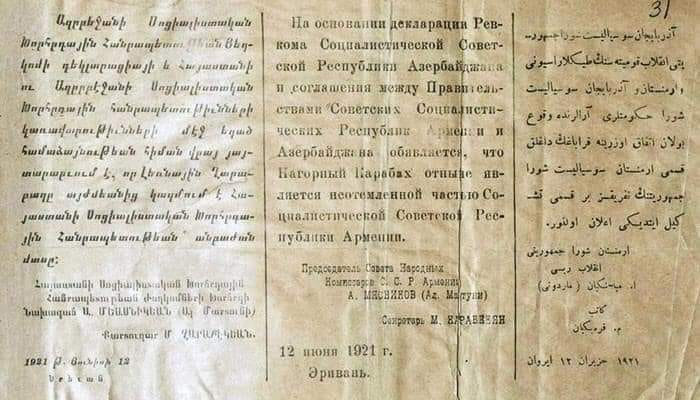 Ադրբեջանի Սոցիալիստական
Խորհրդային Հանրապետութեան Յեղ-
կոմի դեկլարացիայի և Հայաստանի
ու Ադրբեջանի Սոցիալիստական
Խորհրդային հանրապետութիւնների
կառավարութիւնների մէջ եղած
համաձայնութեան հիման վրայ յայ-
տարարւում է, որ Լեռնային Ղարա-
բաղը այժմեանից կազմում է Հա-
յաստանի Սոցիալիստական Խորհրդա-
յին Հանրապետութեան անբաժան
մասը:
Հայաստանի Սոցիալիստական Խորհրդային
Հանրապետութեան Ժողկոմների Խորհրդի
Նախագահ Ա. ՄԵԱՍՆԻԿԵԱՆ (Ալ. Մարտունի)
Քարտուղար Մ. ՂԱՐԱԲԵԿԵԱՆ.
1921 թ. Յունիսի 12
Երեւան
На основании декларации Рев-
кома Социалистической Совет-
ской Республики Азербайджана
и соглашения между Правитель-
ствами Советских Социалисти-
ческих Республик Армении и
Азербайджана обявляется, что
Нагорный Карабах отныне яв-
ляется неотемлемой частью Со-
циалистической Советской Рес-
публики Армении.
Председатель Совета Народных
Комиссаров С. С. Р. Армении
А. МЯСНИКОВ (Ал. Мартуни)
Секретарь М. КАРАБЕКЯН
12 июня 1921 г.
Эривань.
31
آذربایجان سوسیالیست شورا جمهوریـ
یتی انقلاب قومیته سنك دیكلاراسیونی
و ارمنستان و آذربایجان سوسیالیست
شورا حكومتلری آرالرنده وقوع
بولان اتفاق اوزرینه قراباغك داغلق
قسمی ارمنستان سوسیالیست شورا
جمهوریتنك تفریقسز بر قسمی تشـ
كیل ایتدیكی اعلان اولنور.
ارمنستان شورا جمهوریتی
انقلاب رئیسی
ا. میاسنیكیان (مارتونی)
كاتب
م. قره بكیان
١٩٢١ حزیران ١٢ ایروان